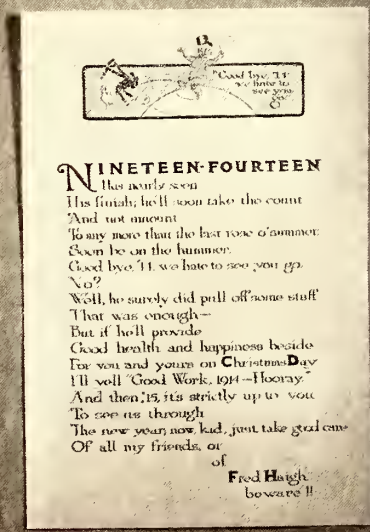 "Good bye, '14
we hate to
see you
go."
NINETEEN-FOURTEEN
Has nearly seen
His finish; he'll soon take the count
And not amount
To any more than the last rose o' summer.
Soon be on the hummer.
Good bye, '14, we hate to see you go.
No?
Well, he surely did pull off some stuff
That was enough—
But if he'll provide
Good health and happiness beside
For you and yours on Christmas Day
I'll yell "Good Work, 1914—Hooray."
And then, '15, it's strictly up to you
To see us through
The new year; now, kid, just take good care
Of all my friends, or
of
Fred Haigh
beware!!